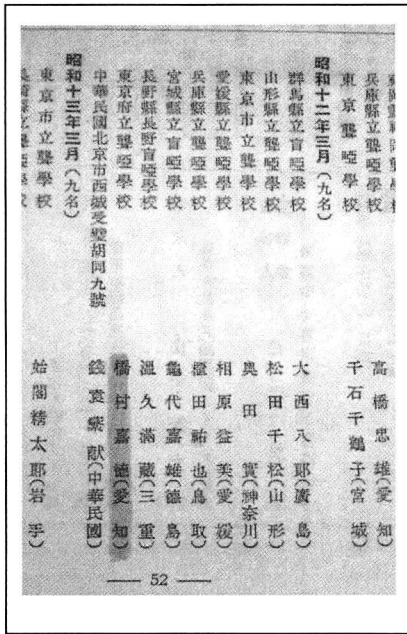 兵庫縣立聾啞學校　高橋忠雄(愛知)
東京聾啞學校　千石千鶴子(宮城)
昭和十二年三月(九名)
群馬縣立盲啞學校　大西八郎(廣島)
山形縣立聾啞學校　松田千松(山形)
東京市立聾學校　奥田實(神奈川)
愛媛縣立聾啞學校　相原益美(愛媛)
兵庫縣立聾啞學校　田祐也(鳥取)
宮城縣立聾啞學校　龜代嘉雄(德島)
長野縣長野盲啞學校　溫久滿藏(三重)
東京府立聾啞學校　橋村嘉德(愛知)
中華民國北京市西城受壁胡同九號　錢(中華民國)
昭和十三年三月(九名)
東京市立聾學校　始閣精太郎(岩手)
長崎縣立聾啞學校
— 52 —